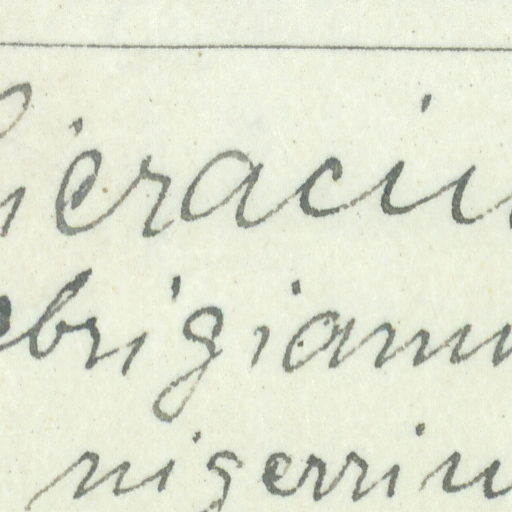 Hieraciu
ebrigianu
nigerriu